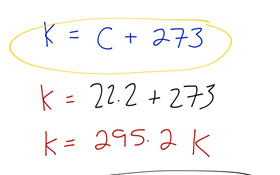 K = C + 273
K = 22.2 + 273
K = 295.2 K